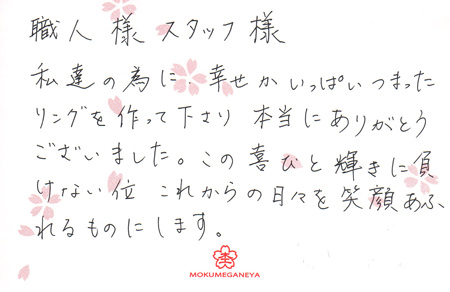 職人様 スタッフ様
私達の為に、幸せがいっぱいつまった
リングを作って下さり 本当にありがとう
ございました。この喜びと輝きに負
けない位 これからの日々を笑顔あふ
れるものにします。
MOKUMEGANEYA